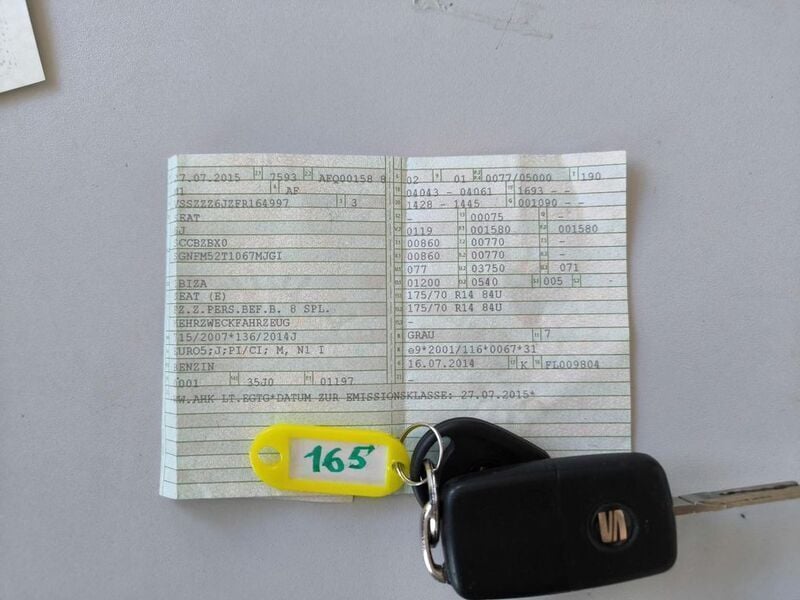 7.07.2015 7593 AFQ00158 8
AF
VSSZZZ6JZFR164997 3
EAT
J
CCBZBX0
GNFM52T1067MJGI
BIZA
EAT (E)
Z.Z.PERS.BEF.B. 8 SPL.
EHRZWECKFAHRZEUG
15/2007*136/2014J
URO5;J;PI/CI; M, N1 T
BENZIN
001 35J0 01197
W.AHK LT.EGTG*DATUM ZUR EMISSIONSKLASSE: 27.07.2015*
02 01 0077/05000 190
04043 - 04061 1693 - -
1428 - 1445 001090 - -
- 00075 -
0119 001580 001580
00860 00770 -
00860 00770 -
077 03750 071
01200 0540 005 -
175/70 R14 84U
175/70 R14 84U
-
GRAU 7
e9*2001/116*0067*31
16.07.2014 K FL009804
-
165